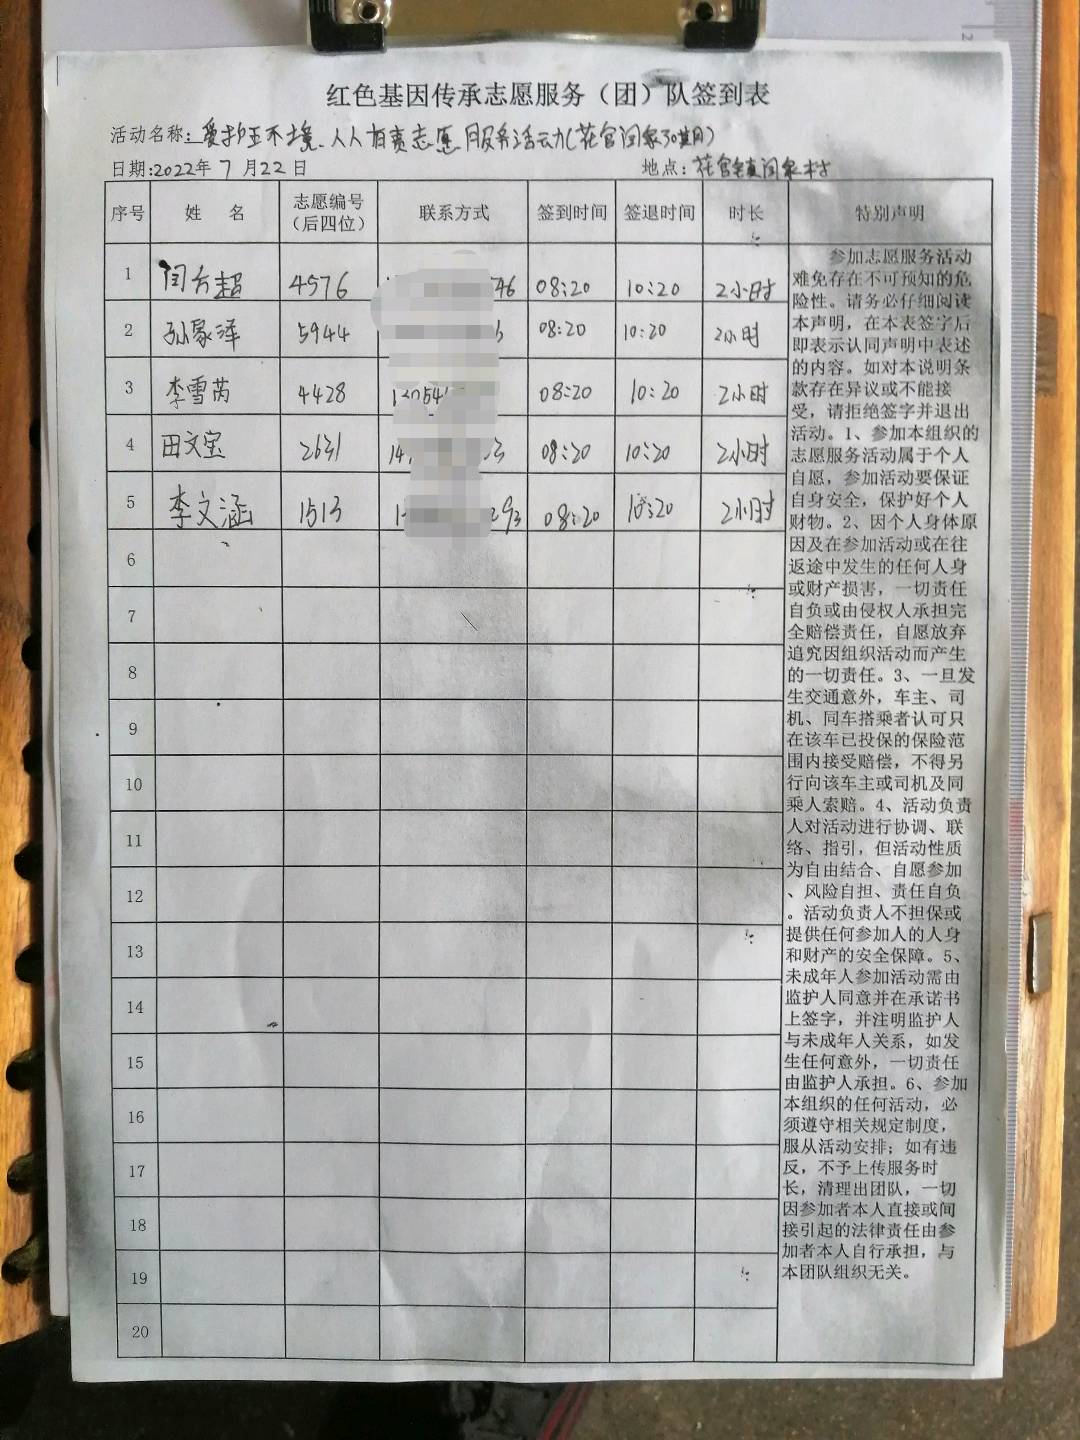 红色基因传承志愿服务（团）队签到表
活动名称：爱护环境、人人有责志愿服务活动（花官闫家30期）
日期：2022年7月22日 地点：花官镇闫家村
序号 姓 名 志愿编号（后四位） 联系方式 签到时间 签退时间 时长 特别声明
1 闫方超 4576 46 08:20 10:20 2小时
2 孙家泽 5944 08:20 10:20 2小时
3 李雪芮 4428 08:20 10:20 2小时
4 田文宝 2631 08:20 10:20 2小时
5 李文涵 1513 293 08:20 10:20 2小时
6
7
8
9
10
11
12
13
14
15
16
17
18
19
20
参加志愿服务活动
难免存在不可预知的危
险性。请务必仔细阅读
本声明，在本表签字后
即表示认同声明中表述
的内容。如对本说明条
款存在异议或不能接
受，请拒绝签字并退出
活动。1、参加本组织的
志愿服务活动属于个人
自愿，参加活动要保证
自身安全，保护好个人
财物。2、因个人身体原
因及在参加活动或在往
返途中发生的任何人身
或财产损害，一切责任
自负或由侵权人承担完
全赔偿责任，自愿放弃
追究因组织活动而产生
的一切责任。3、一旦发
生交通意外，车主、司
机、同车搭乘者认可只
在该车已投保的保险范
围内接受赔偿，不得另
行向该车主或司机及同
乘人索赔。4、活动负责
人对活动进行协调、联
络、指引，但活动性质
为自由结合、自愿参加
、风险自担、责任自负
。活动负责人不担保或
提供任何参加人的人身
和财产的安全保障。5、
未成年人参加活动需由
监护人同意并在承诺书
上签字，并注明监护人
与未成年人关系，如发
生任何意外，一切责任
由监护人承担。6、参加
本组织的任何活动，必
须遵守相关规定制度，
服从活动安排；如有违
反，不予上传服务时
长，清理出团队，一切
因参加者本人直接或间
接引起的法律责任由参
加者本人自行承担，与
本团队组织无关。